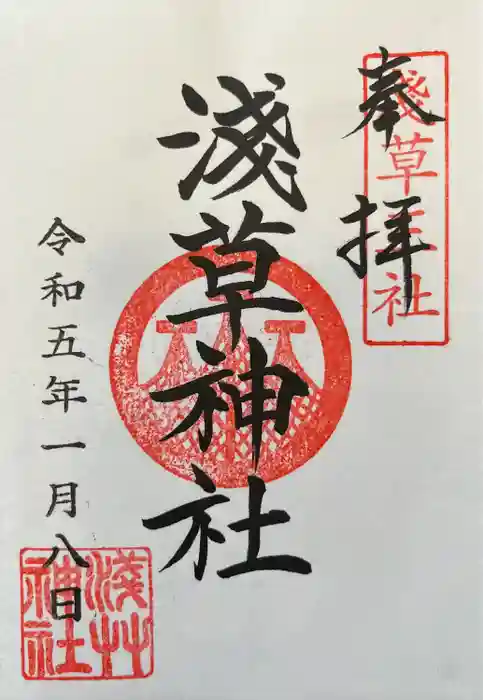 奉拝
淺草三社
淺草神社
令和五年一月八日
淺艸
神社